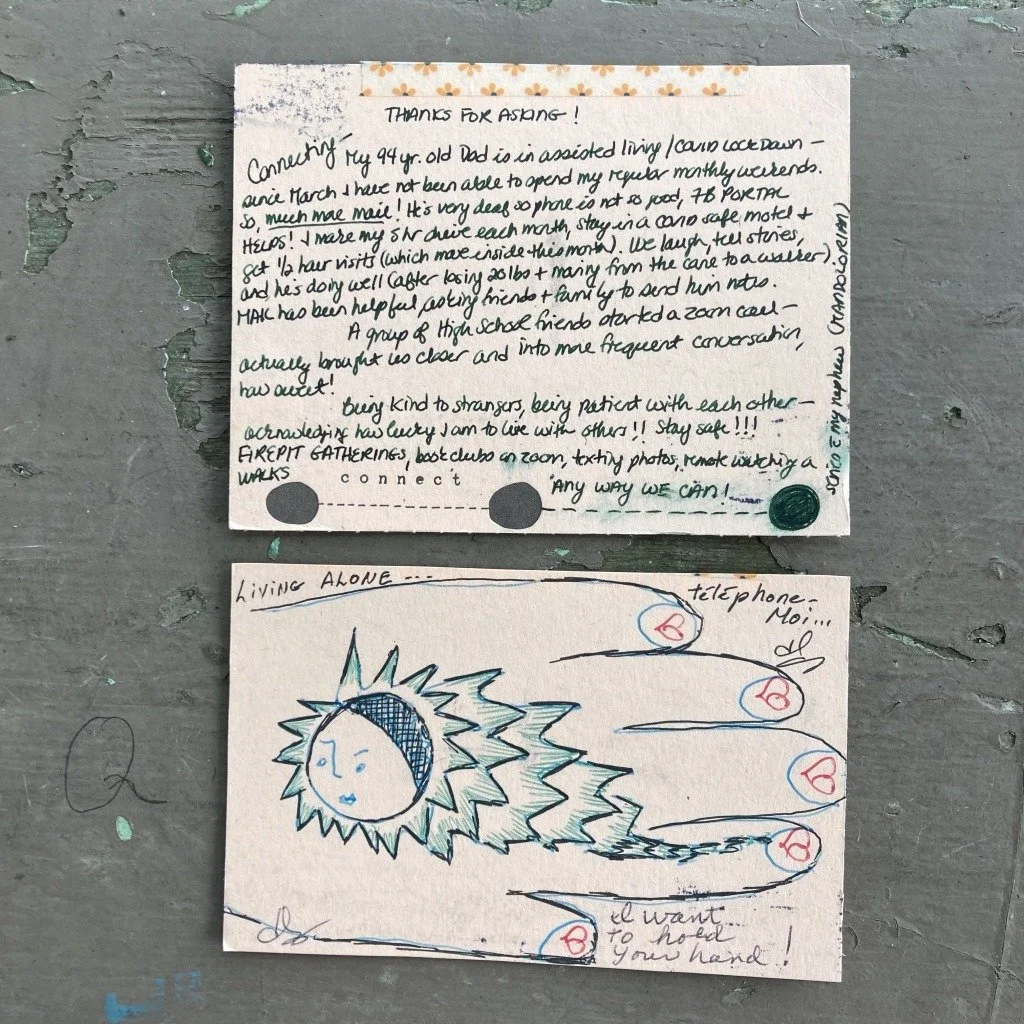 THANKS FOR ASKING!
Connecting - My 94 yr. old Dad is in assisted living / COVID LOCKDOWN -
since March I have not been able to spend my regular monthly weekends.
So, much more mail! He's very deaf so phone is not so good, FB PORTAL
HELPS! I make my 5 hr drive each month, stay in a COVID safe motel +
get 1/2 hour visits (which move inside this month). We laugh, tell stories,
and he's doing well (after losing 20 lbs + moving from the cane to a walker)
MAIL has been helpful, asking friends + family to send him notes.
A group of High School friends started a zoom call -
actually brought us closer and into more frequent conversation,
how sweet!
Being kind to strangers, being patient with each other -
acknowledging how lucky I am to live with others!! Stay safe!!!
FIREPIT GATHERINGS, book clubs on zoom, texting photos, remote watching a
series c̄ my nephew (MANDOLORIAN)
WALKS
connect
ANY WAY WE CAN!
LIVING ALONE ---
téléphone-
Moi...
I want
to hold
your hand!